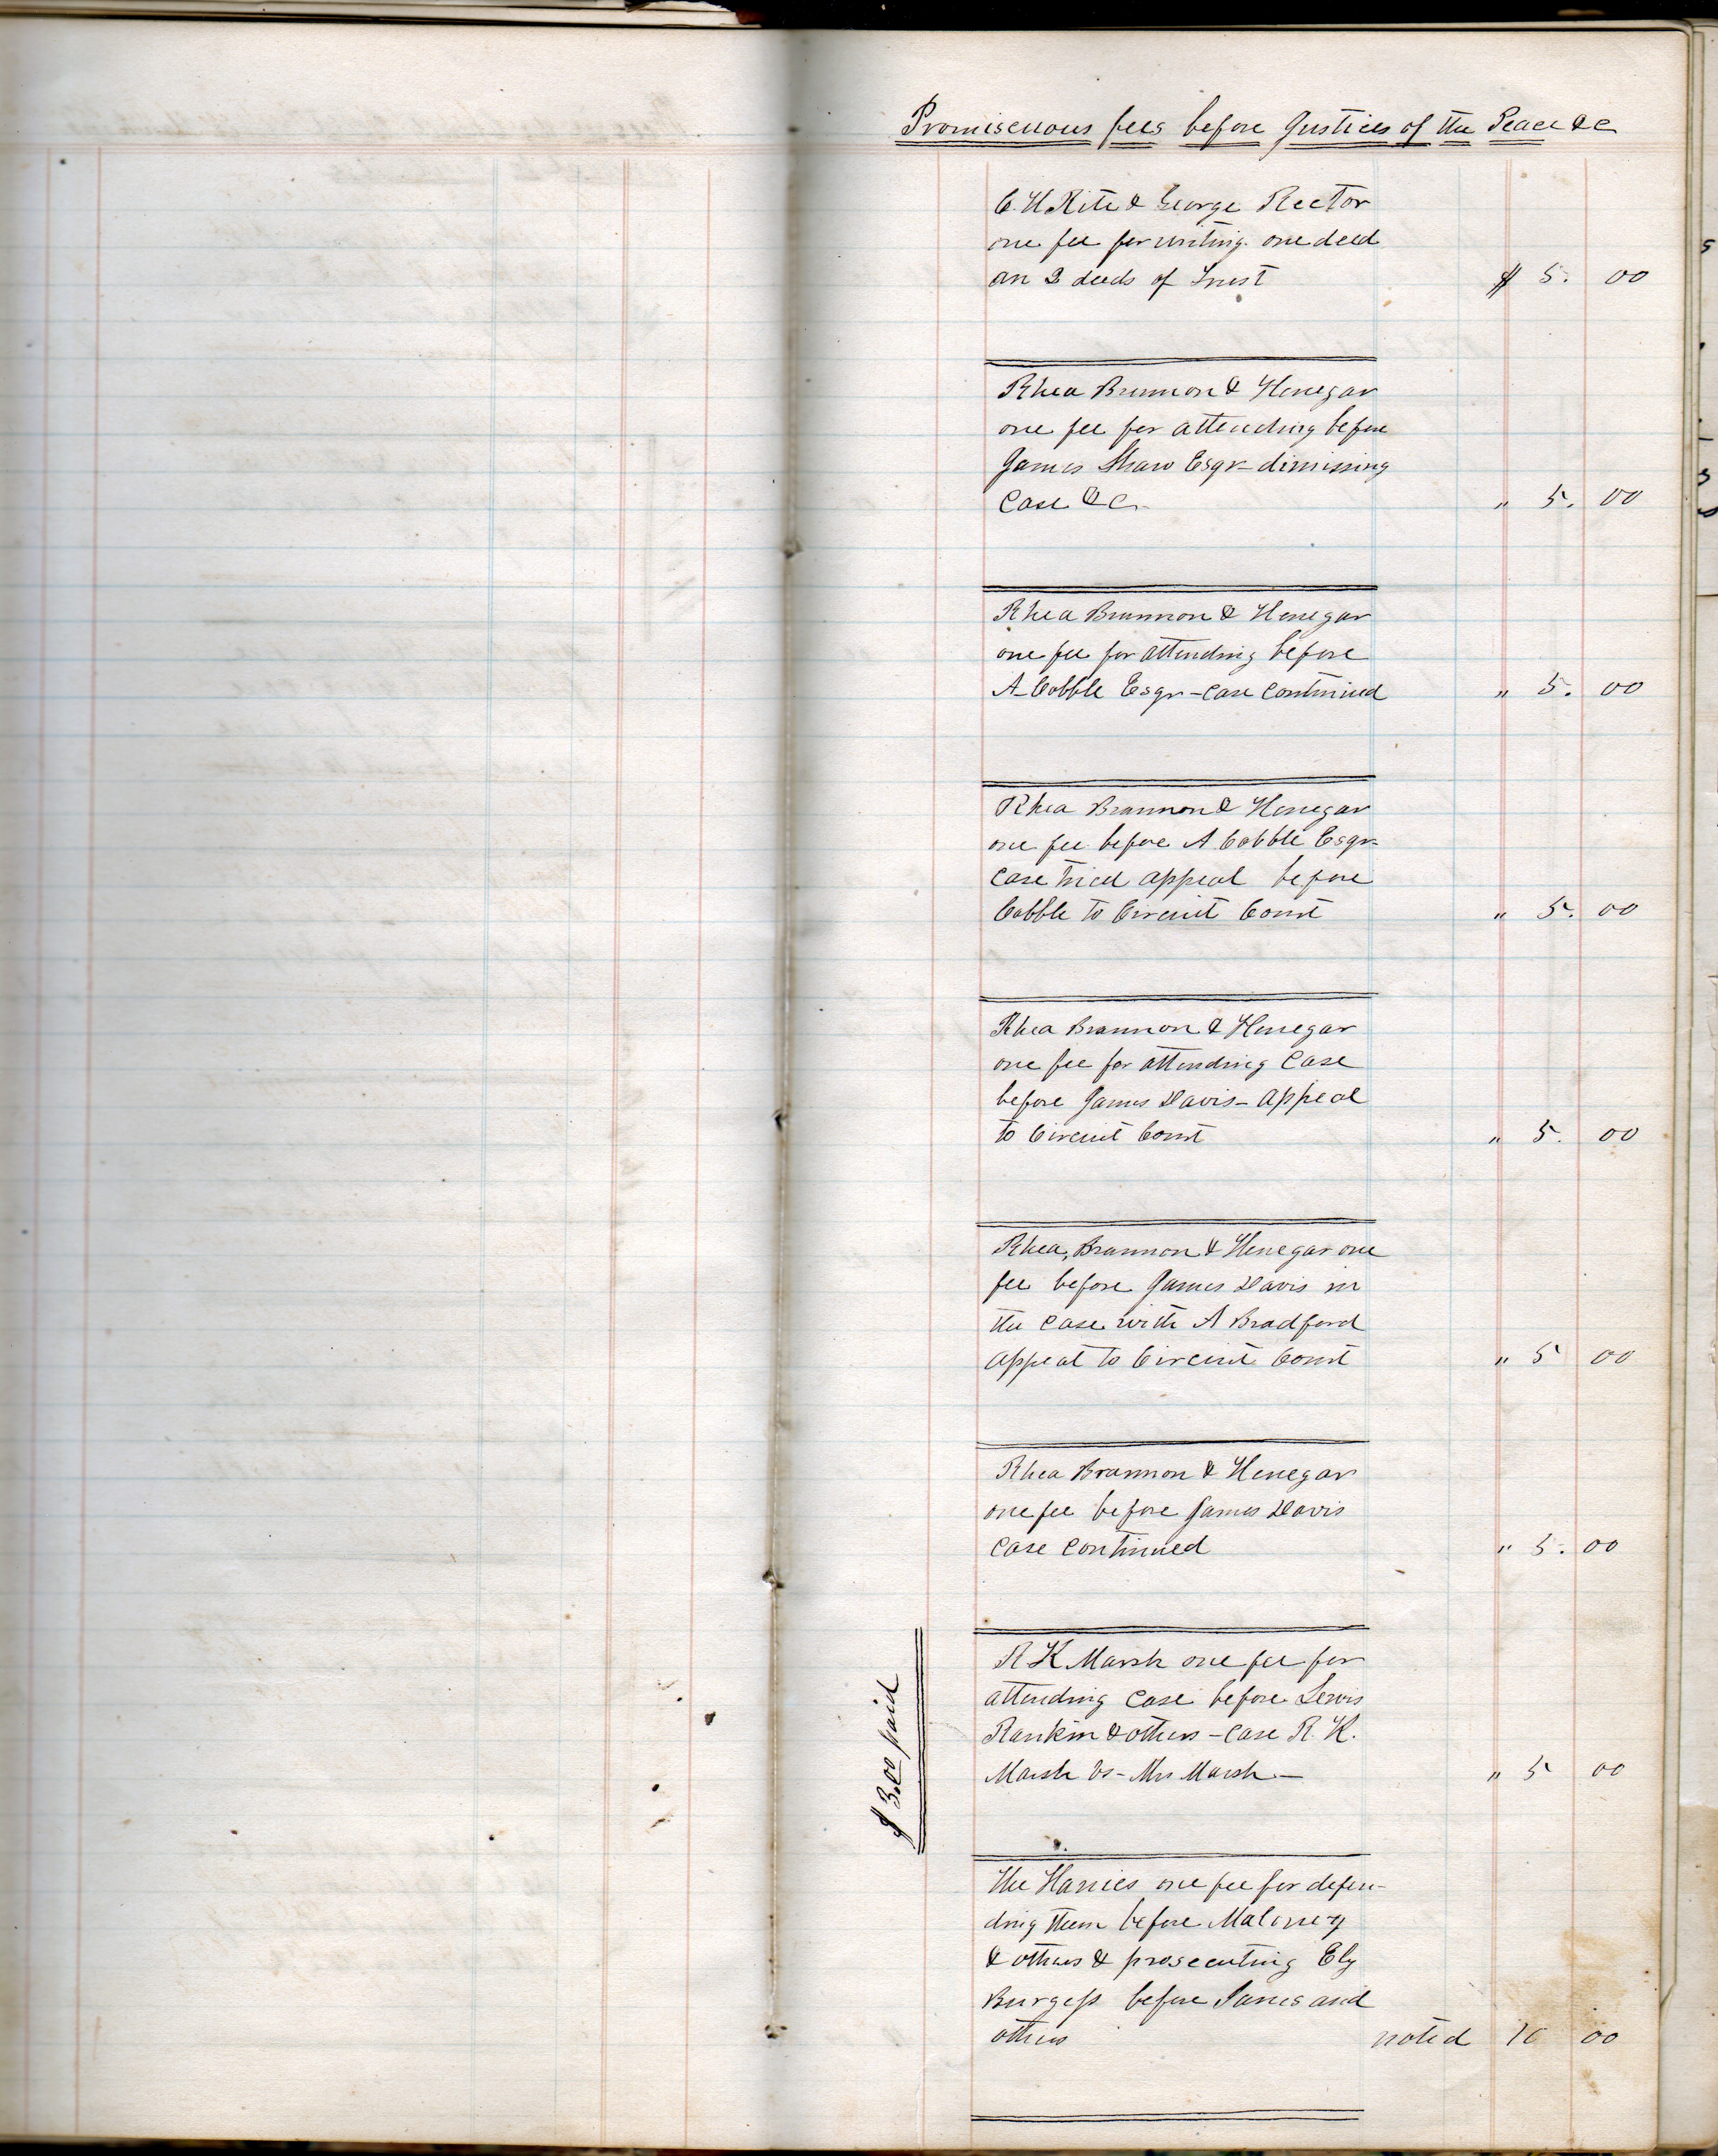 Promiscuous fees before Justices of the Peace &c
C. H Rite & George Rector
one fee for writing one deed
an 2 deeds of Trust $ 5. 00
Rhea Brannon & Henegar
one fee for attending before
James Shaw Esqr - dimissing
Case &c. " 5. 00
Rhea Brannon & Henegar
one fee for attending before
A Cobble Esqr - case continued " 5. 00
Rhea Brannon & Henegar
one fee before A Cobble Esqr -
Case tried appeal before
Cobble to Circuit Court " 5. 00
Rhea Brannon & Henegar
one fee for attending Case
before James Davis - appeal
to Circuit Court " 5. 00
Rhea, Brannon & Henegar one
fee before James Davis in
the case with A Bradford
appeal to Circuit Court " 5 00
Rhea Brannon & Henegar
one fee before James Davis
Case Continued " 5. 00
$ 3.00 paid
R K Marsh one fee for
attending Case before Lewis
Rankin & others - case R. K.
Marsh vs - Mrs Marsh - " 5 00
The one fee for defen-
ding them before Maloney
& others & prosecuting Ely
Burgess before and
others noted 10 00